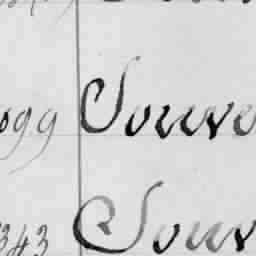 099 Souve
343 Souv